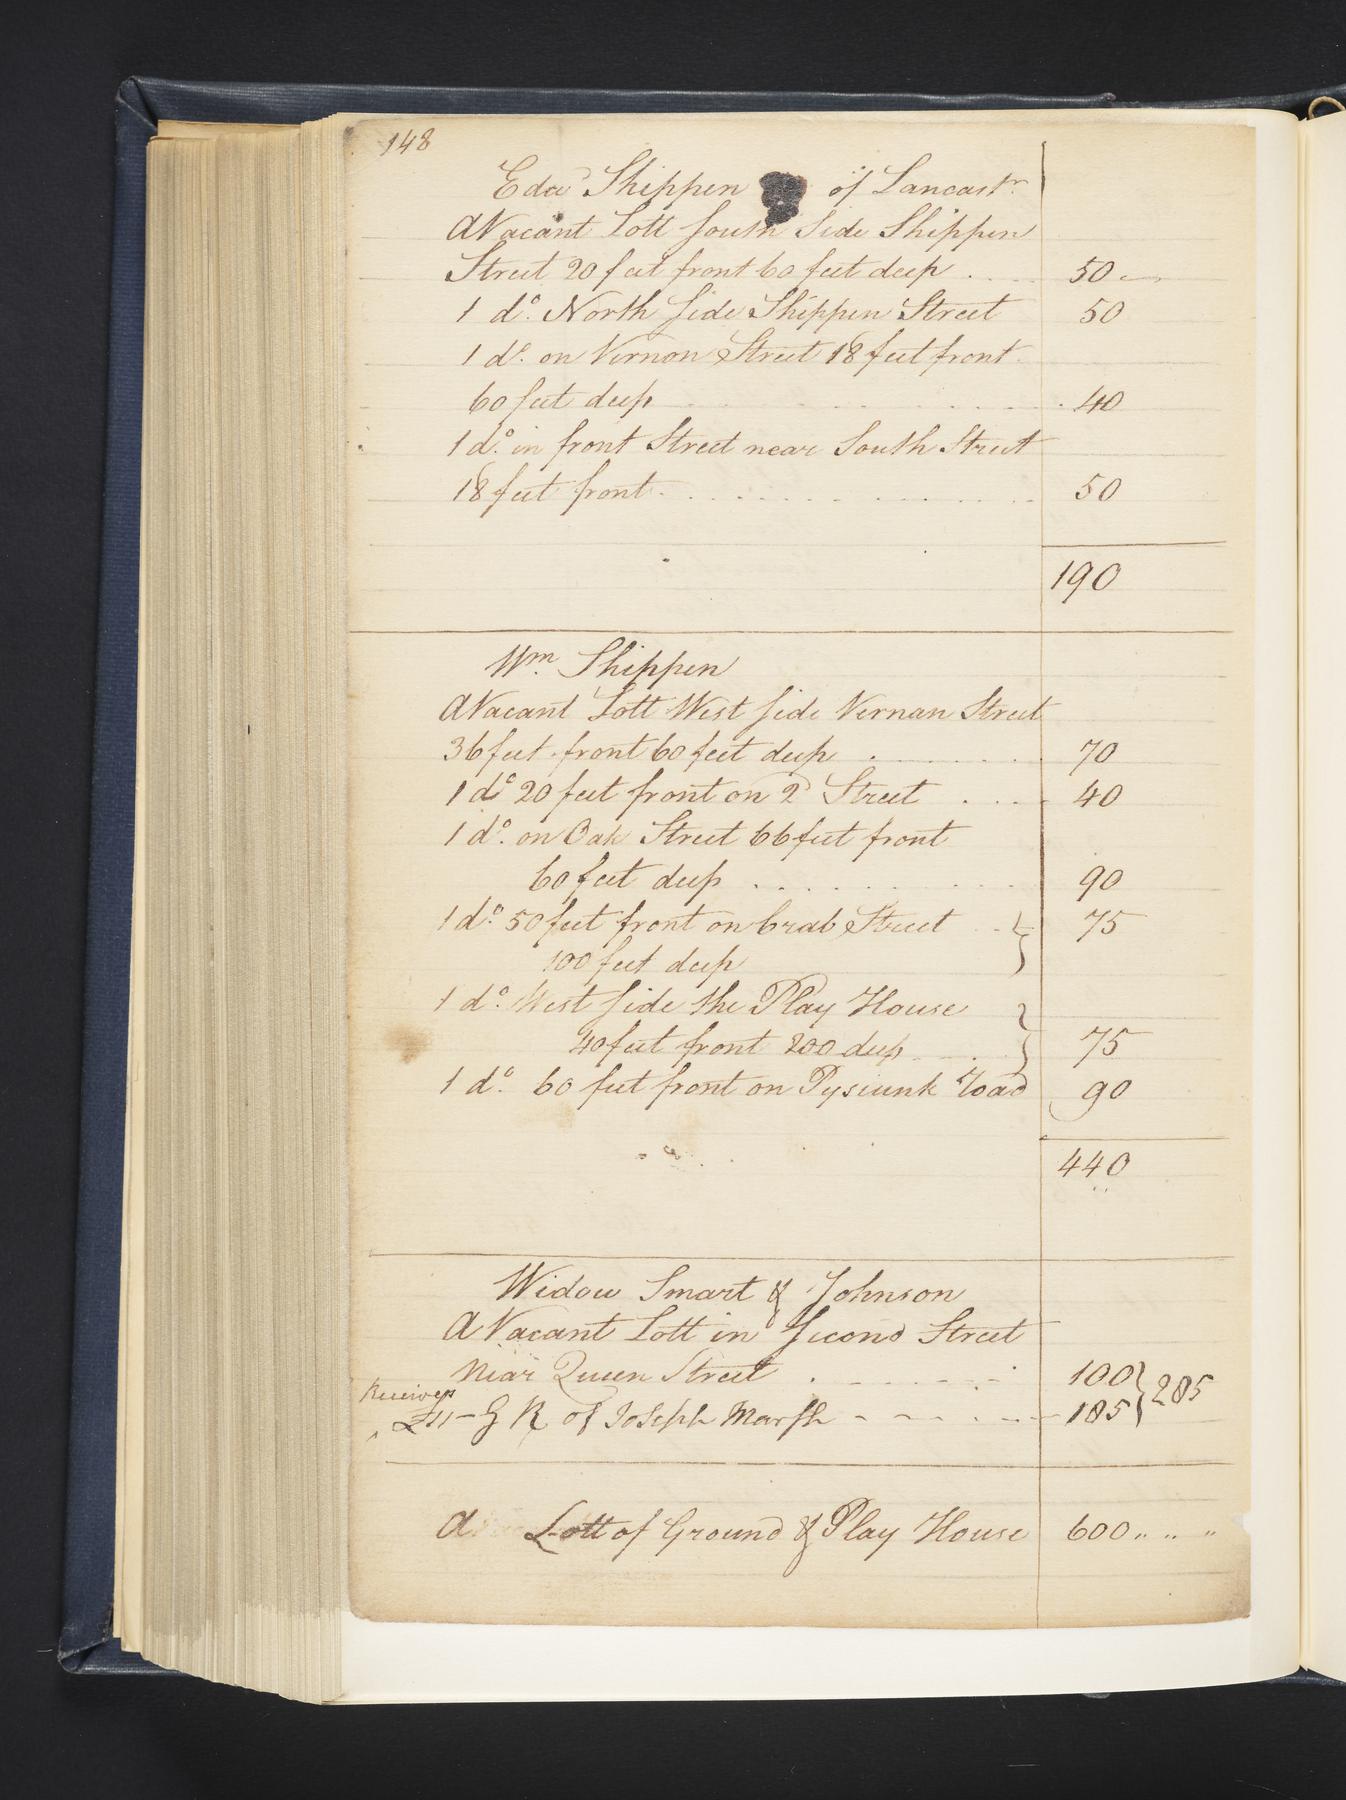 148
Edwd Shippen of Lancastr
A Vacant Lott South Side Shippen
Street 20 feet front 60 feet deep . . . 50
1 do. North Side Shippen Street 50
1 do. on Vernon Street 18 feet front
60 feet deep 40
1 do. in front Street near South Street
18 feet front 50
190
Wm. Shippen
A Vacant Lott West Side Vernan Street
36 feet front 60 feet deep 70
1 do 20 feet front on 2d Street 40
1 do. on Oak Street 66 feet front
60 feet deep 90
1 do. 50 feet front on Crab Street } 75
100 feet deep
1 do. West Side the Play House }
40 feet front 200 deep 75
1 do. 60 feet front on Pysiunk Road 90
440
Widow Smart & Johnson
A Vacant Lott in Second Street
Near Queen Street 100 } 285
Receives
£11 - G R of Joseph Marsh 185
A Lott of Ground & Play House 600 " " "